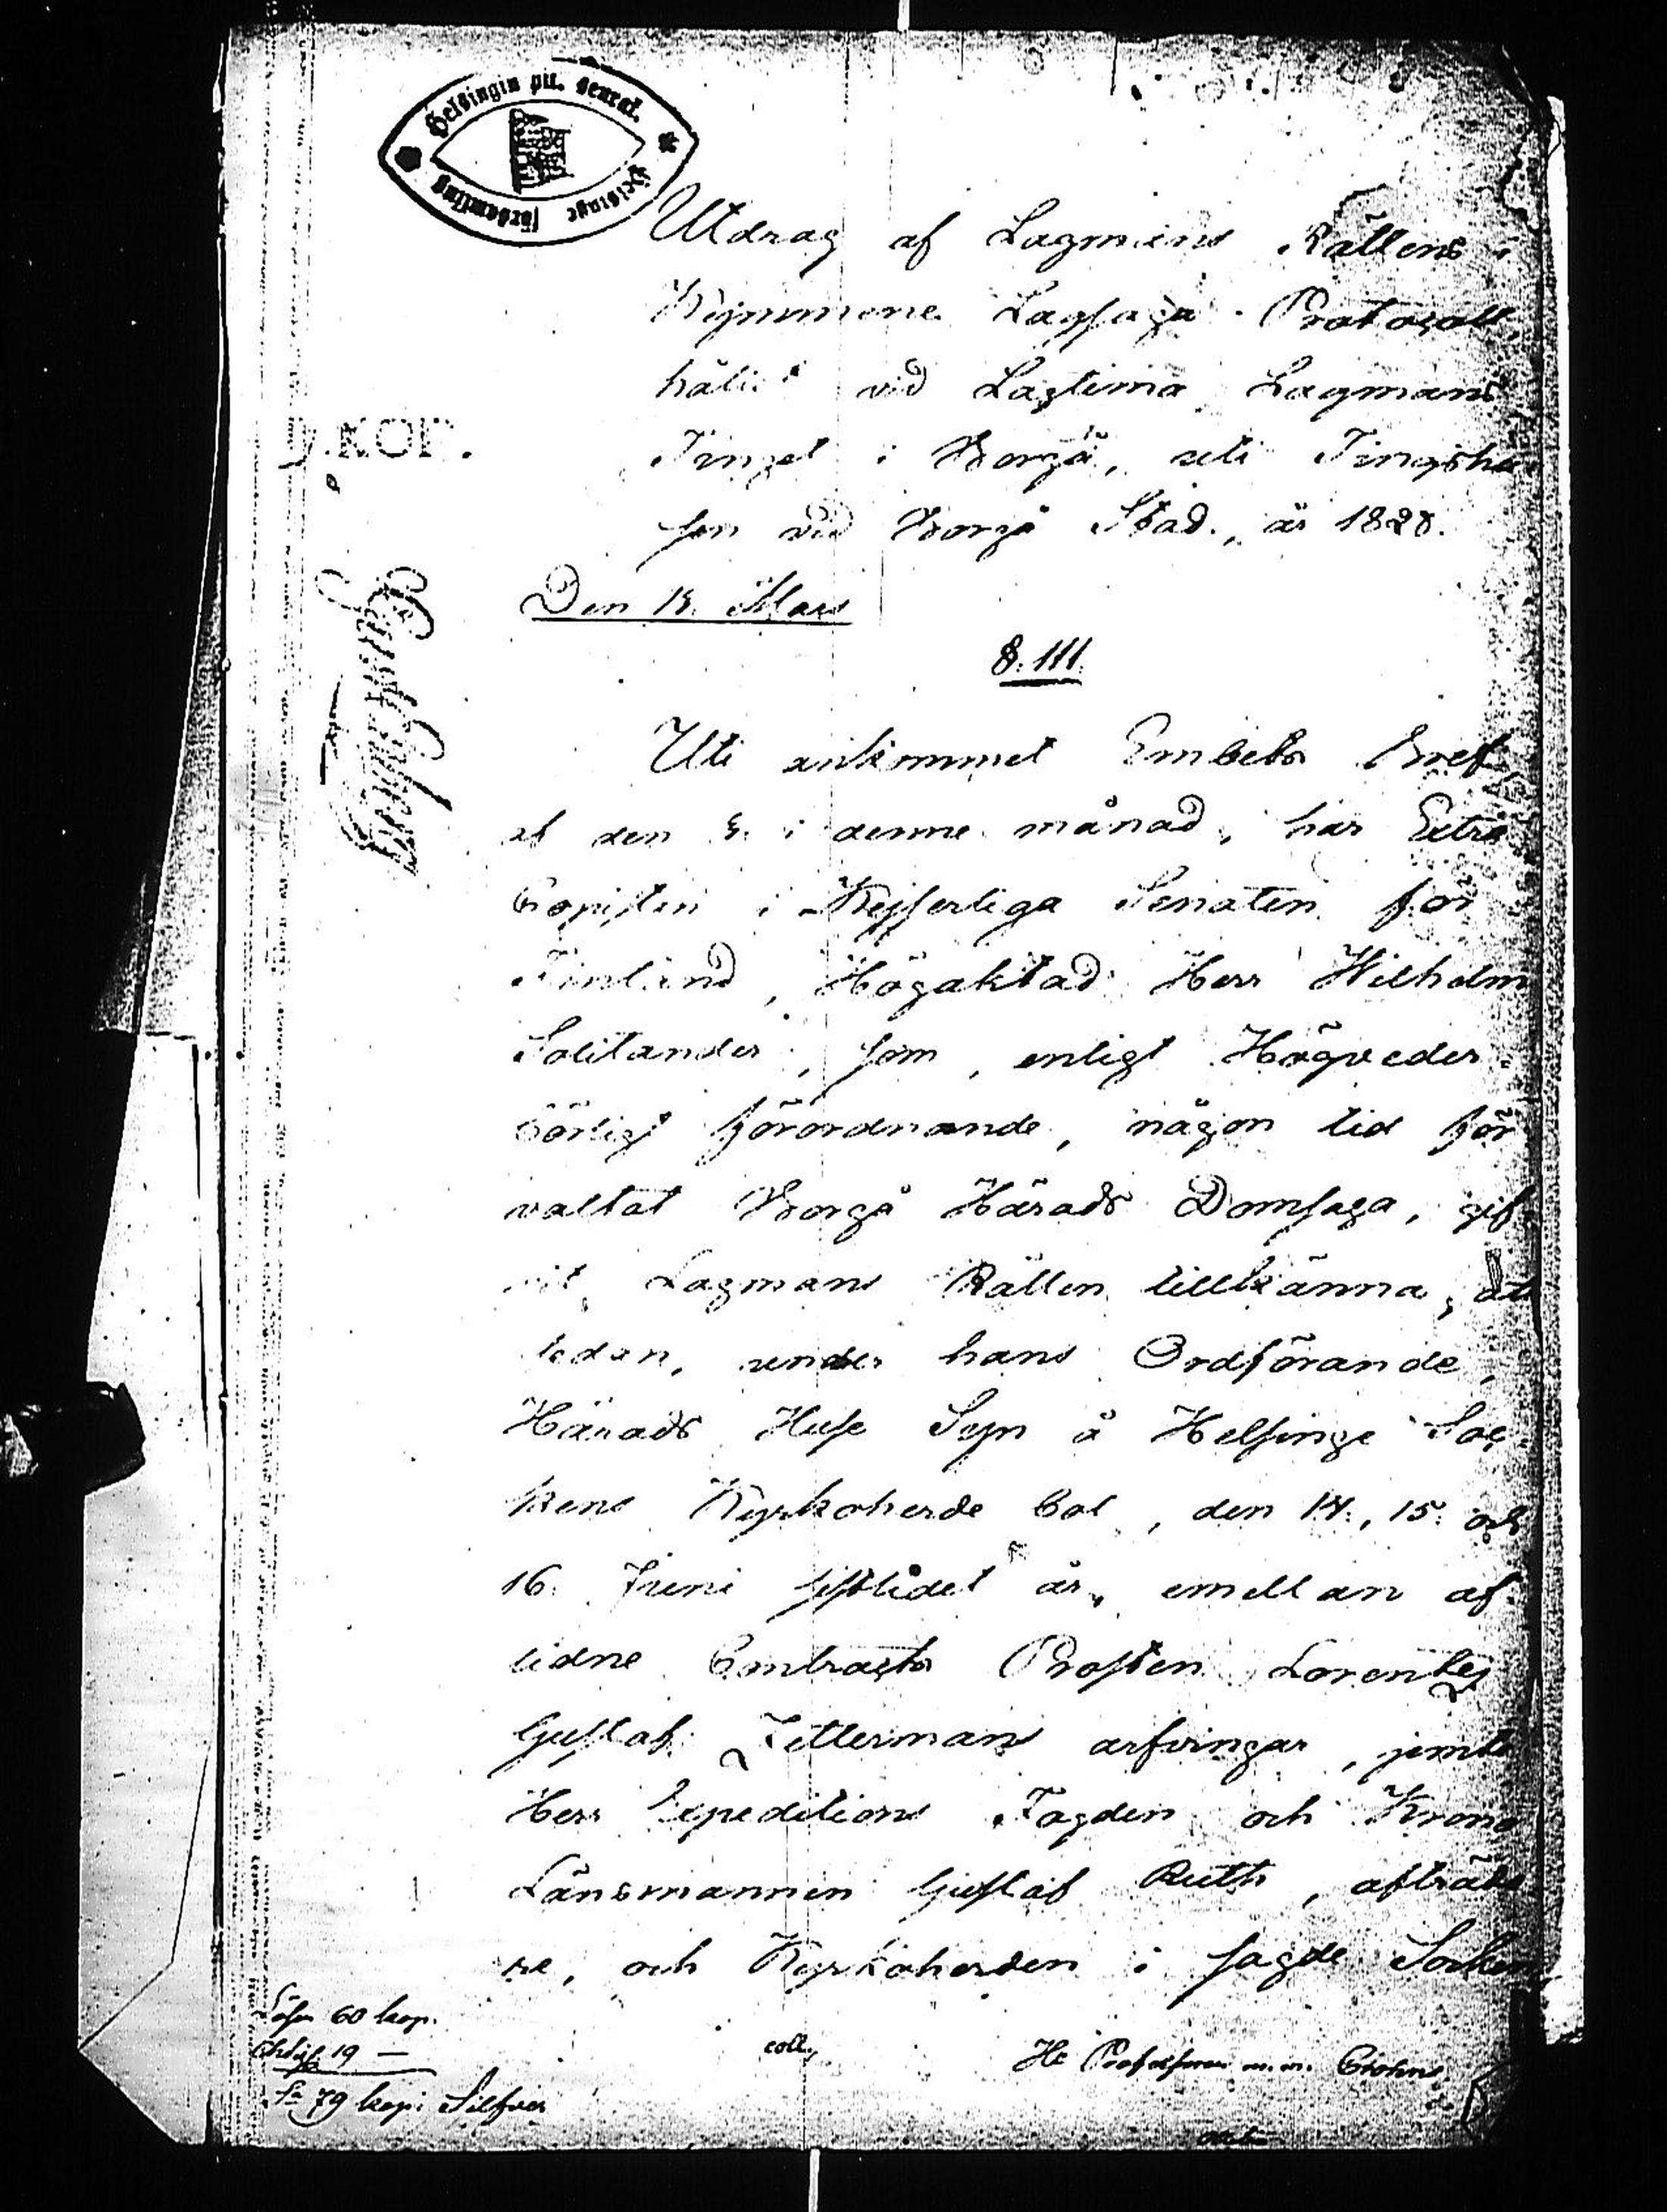 Helsingin pit. seurak.
Helsinge församling
Utdrag af Lagmans Rättens i
Kymmene Lagsaga Protocoll,
hållit vid Lagtima Lagmans
Tinget i Borgå, uti Tingshu
sen vid Borgå Stad, år 1828.
KOP.
Den 18. Mars
§. 111.
Uti ankommet Embets Bref
af den 8. i denne månad, har Extra
Copisten i Kejserliga Senaten för
Finland, Högaktad Herr Wilhelm
Solitander, som, enligt Högveder
börligt förordnande, någon tid för
valtat Borgå Härads Domsaga, gif
vit Lagmans Rätten tillkänna, at
sedan, under hans Ordförande,
Härads Huse Syn å Helsinge Soc
kens Kyrkoherde Bol, den 14., 15. och
16. Juni sistlidet år, emellan af
lidne Contracts Prosten Lorentz
Gustaf Zettermans arfvingar, jemte
Herr Expeditions Fogden och Krono
Länsmannen Gustaf Ruth, afträda
re, och Kyrkoherden i sagde Socken
Lösen 60 kop.
19 —
Sa 79 kop: Silfver
coll.
Hr Professoren m.m. Crohns